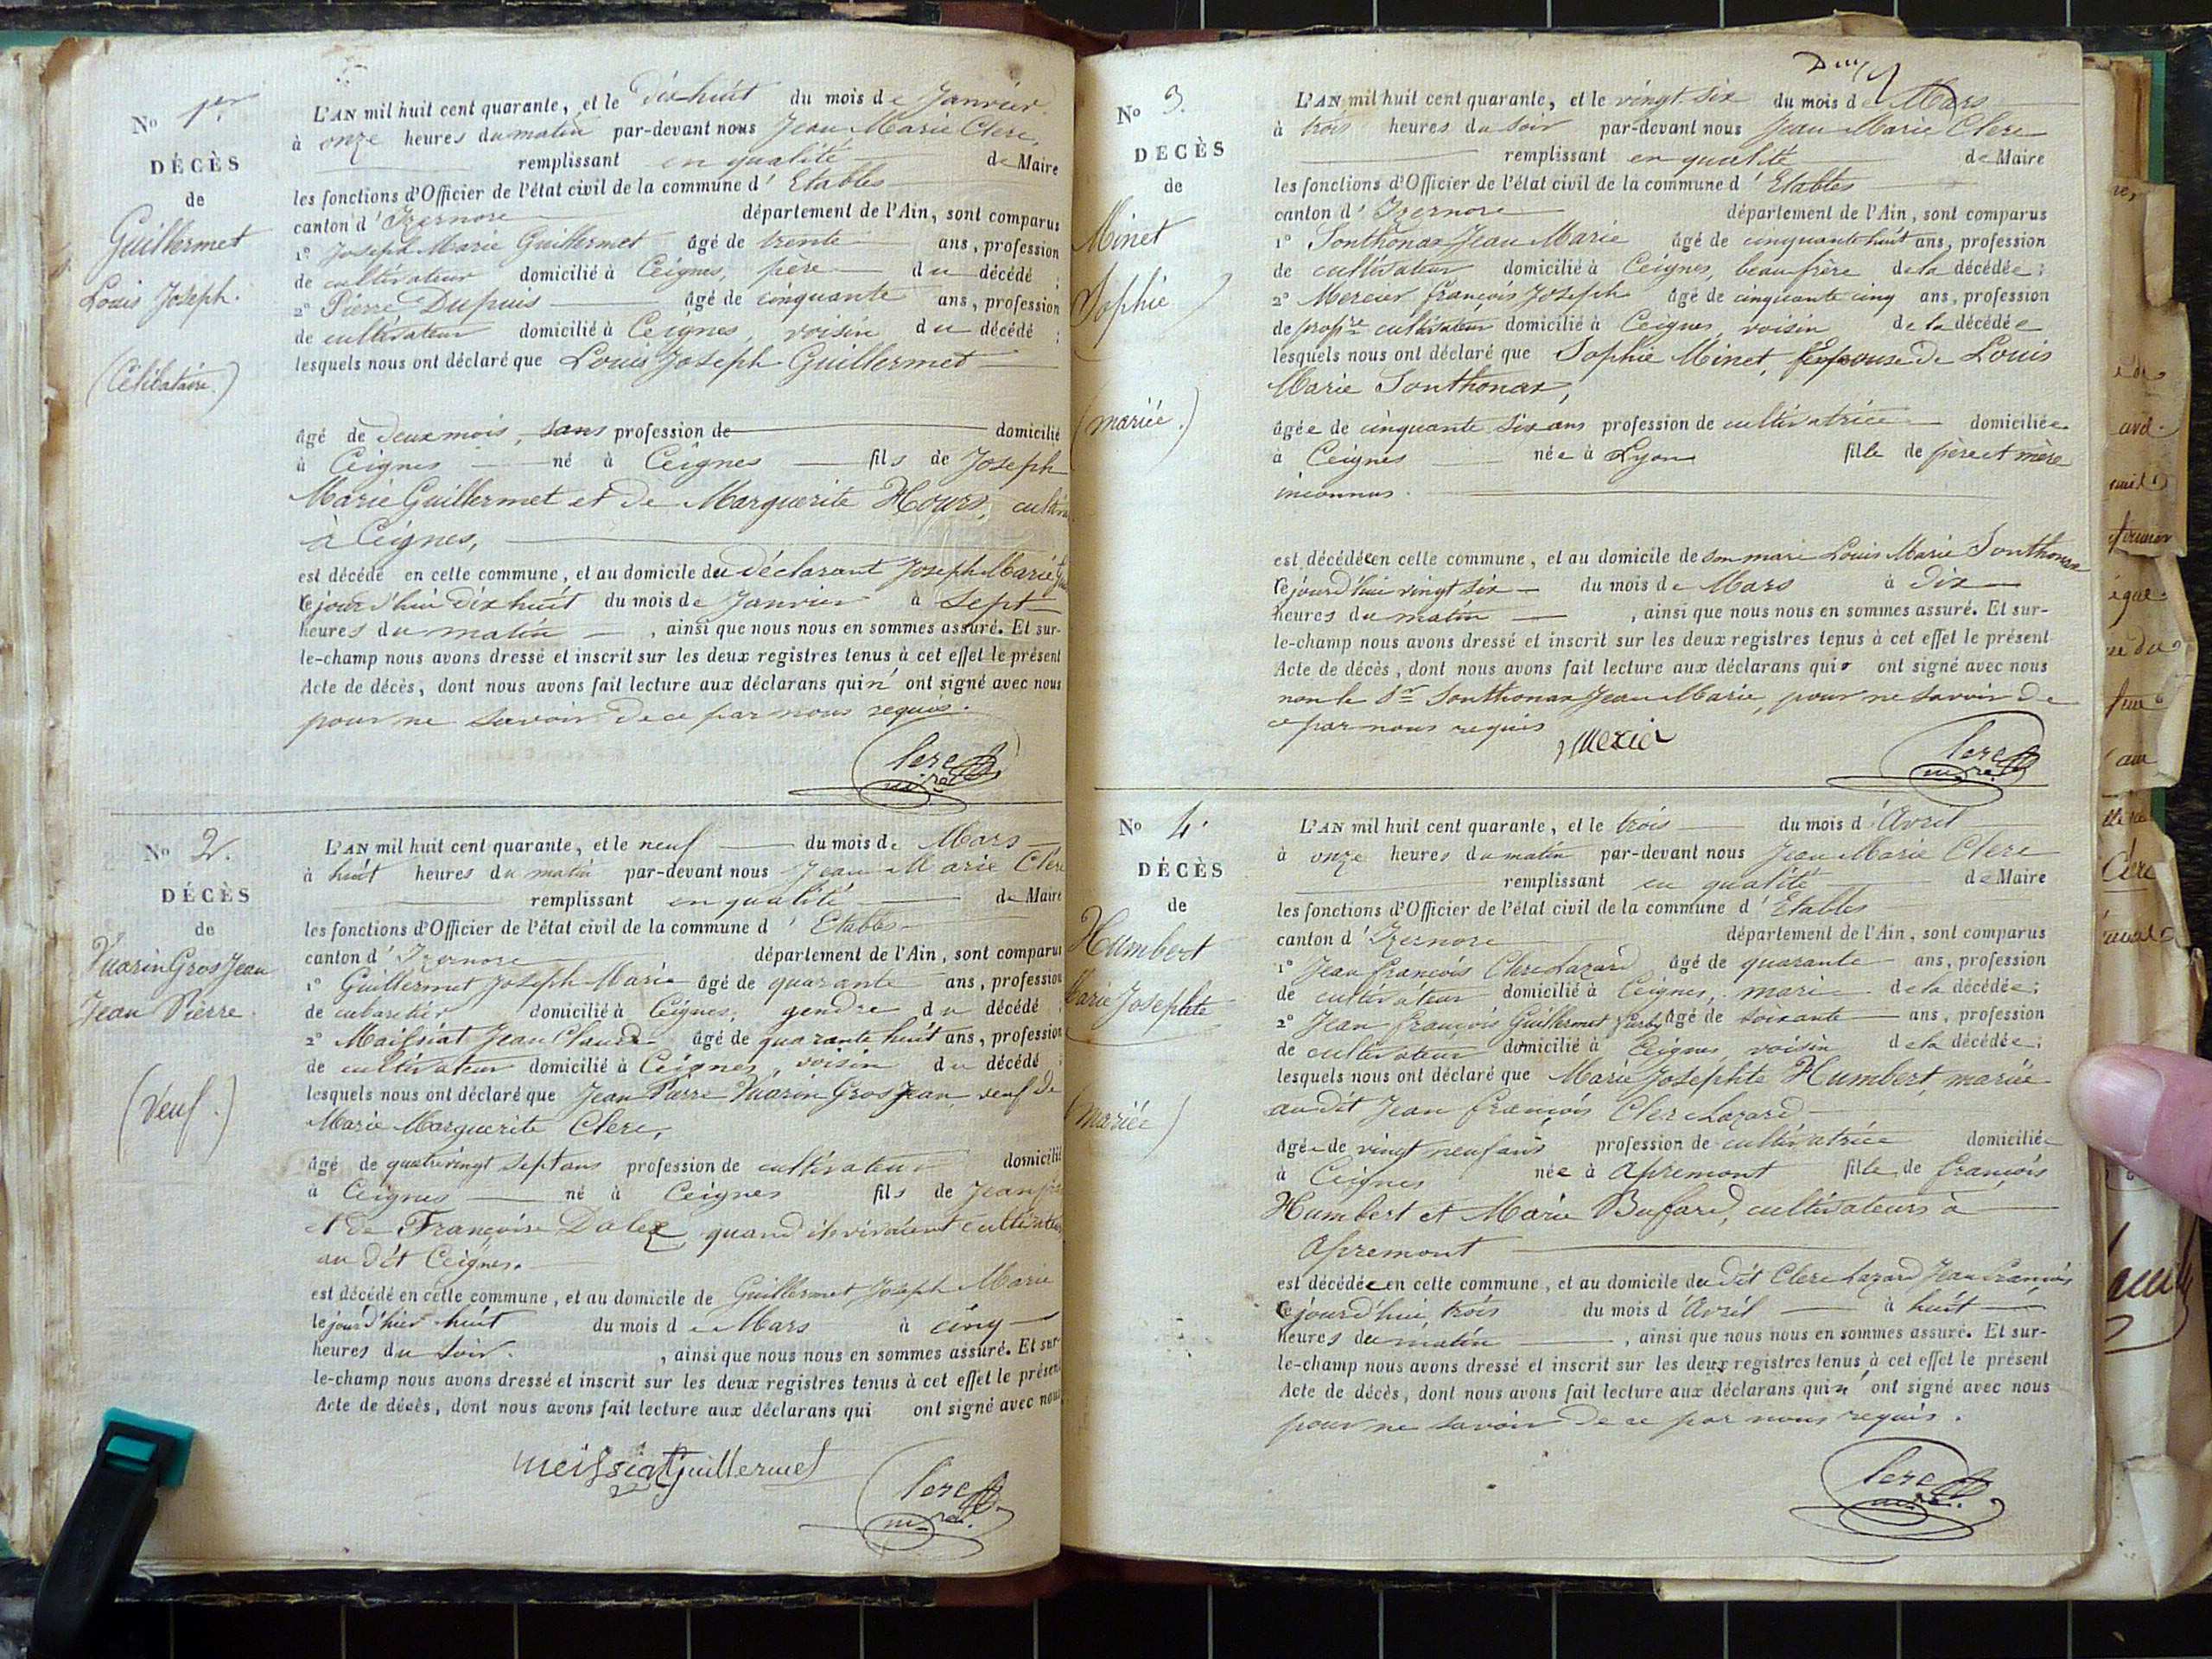 No 1er
DÉCÈS
de
Guillermet
Louis Joseph.
(Célibataire.)
L'AN mil huit cent quarante, et le dix huit du mois de Janvier
à onze heures du matin par-devant nous Jean Marie Clerc,
remplissant en qualité de Maire
les fonctions d'Officier de l'état civil de la commune d'Etables
canton d'Izernore département de l'Ain, sont comparus
1° Joseph Marie Guillermet âgé de trente ans, profession
de cultivateur domicilié à Ceignes, père du décédé ;
2° Pierre Dupuis âgé de cinquante ans, profession
de cultivateur domicilié à Ceignes, voisin du décédé ;
lesquels nous ont déclaré que Louis Joseph Guillermet
âgé de deux mois, sans profession de domicilié
à Ceignes né à Ceignes fils de Joseph
Marie Guillermet et de Marguerite Hours,
à Ceignes,
est décédé en cette commune, et au domicile du déclarant Joseph Marie
cejourd'hui dix huit du mois de Janvier à sept
heures du matin , ainsi que nous nous en sommes assuré. Et sur-
le-champ nous avons dressé et inscrit sur les deux registres tenus à cet effet le présent
Acte de décès, dont nous avons fait lecture aux déclarans qui n'ont signé avec nous
pour ne savoir de ce par nous requis.
Clerc
No 2.
DÉCÈS
de
Vuarin Gros Jean
Jean Pierre.
(Veuf.)
L'AN mil huit cent quarante, et le neuf du mois de Mars
à huit heures du matin par-devant nous Jean Marie Clerc
remplissant en qualité de Maire
les fonctions d'Officier de l'état civil de la commune d'Etables
canton d'Izernore département de l'Ain, sont comparus
1° Guillermet Joseph Marie âgé de quarante ans, profession
de cabaretier domicilié à Ceignes, gendre du décédé
2° Maissiat Jean Claude âgé de quarante huit ans, profession
de cultivateur domicilié à Ceignes, voisin du décédé
lesquels nous ont déclaré que Jean Pierre Vuarin Gros Jean, veuf de
Marie Marguerite Clerc,
âgé de quatre vingt sept ans profession de cultivateur domicilié
à Ceignes né à Ceignes fils de Jean
et de Françoise Dalex, quand ils vivaient
au dit Ceignes.
est décédé en cette commune, et au domicile de Guillermet Joseph Marie
le jour d'hier huit du mois de Mars à cinq
heures du soir. , ainsi que nous nous en sommes assuré. Et sur-
le-champ nous avons dressé et inscrit sur les deux registres tenus à cet effet le présent
Acte de décès, dont nous avons fait lecture aux déclarans qui ont signé avec nous
meissiat Guillermet
Clerc
No 3.
DÉCÈS
de
Minet
Sophie
(mariée.)
L'AN mil huit cent quarante, et le vingt six du mois de Mars
à trois heures du soir par-devant nous Jean Marie Clerc
remplissant en qualité de Maire
les fonctions d'Officier de l'état civil de la commune d'Etables
canton d'Izernore département de l'Ain, sont comparus
1° Sonthonax Jean Marie âgé de cinquante huit ans, profession
de cultivateur domicilié à Ceignes, beau frère de la décédée ;
2° Mercier françois Joseph âgé de cinquante cinq ans, profession
de propre cultivateur domicilié à Ceignes, voisin de la décédée
lesquels nous ont déclaré que Sophie Minet, Epouse de Louis
Marie Sonthonax,
âgée de cinquante six ans profession de cultivatrice domiciliée
à Ceignes née à Lyon fille de père et mère
inconnus.
est décédée en cette commune, et au domicile de son mari Louis Marie Sonthonax
cejourd'hui vingt six du mois de Mars à dix
heures du matin , ainsi que nous nous en sommes assuré. Et sur-
le-champ nous avons dressé et inscrit sur les deux registres tenus à cet effet le présent
Acte de décès, dont nous avons fait lecture aux déclarans qui ont signé avec nous
non le Sr Sonthonax Jean Marie, pour ne savoir de
ce par nous requis
Clerc
No 4.
DÉCÈS
de
Humbert
Marie Josephte
(mariée)
L'AN mil huit cent quarante, et le trois du mois d'Avril
à onze heures du matin par-devant nous Jean Marie Clerc
remplissant en qualité de Maire
les fonctions d'Officier de l'état civil de la commune d'Etables
canton d'Izernore département de l'Ain, sont comparus
1° Jean françois Clerc Lazard âgé de quarante ans, profession
de cultivateur domicilié à Ceignes, mari de la décédée ;
2° Jean françois Guillermet âgé de soixante ans, profession
de cultivateur domicilié à Ceignes, voisin de la décédée ;
lesquels nous ont déclaré que Marie Josephte Humbert, mariée
audit Jean françois Clerc Lazard
âgée de vingt neuf ans profession de cultivatrice domiciliée
à Ceignes née à Apremont fille de françois
Humbert et Marie Buffard, cultivateurs à
Apremont
est décédée en cette commune, et au domicile du dit Clerc Lazard Jean françois
cejourd'hui, trois du mois d'Avril à huit
heures du matin , ainsi que nous nous en sommes assuré. Et sur-
le-champ nous avons dressé et inscrit sur les deux registres tenus à cet effet le présent
Acte de décès, dont nous avons fait lecture aux déclarans qui n'ont signé avec nous
pour ne savoir de ce par nous requis.
Clerc